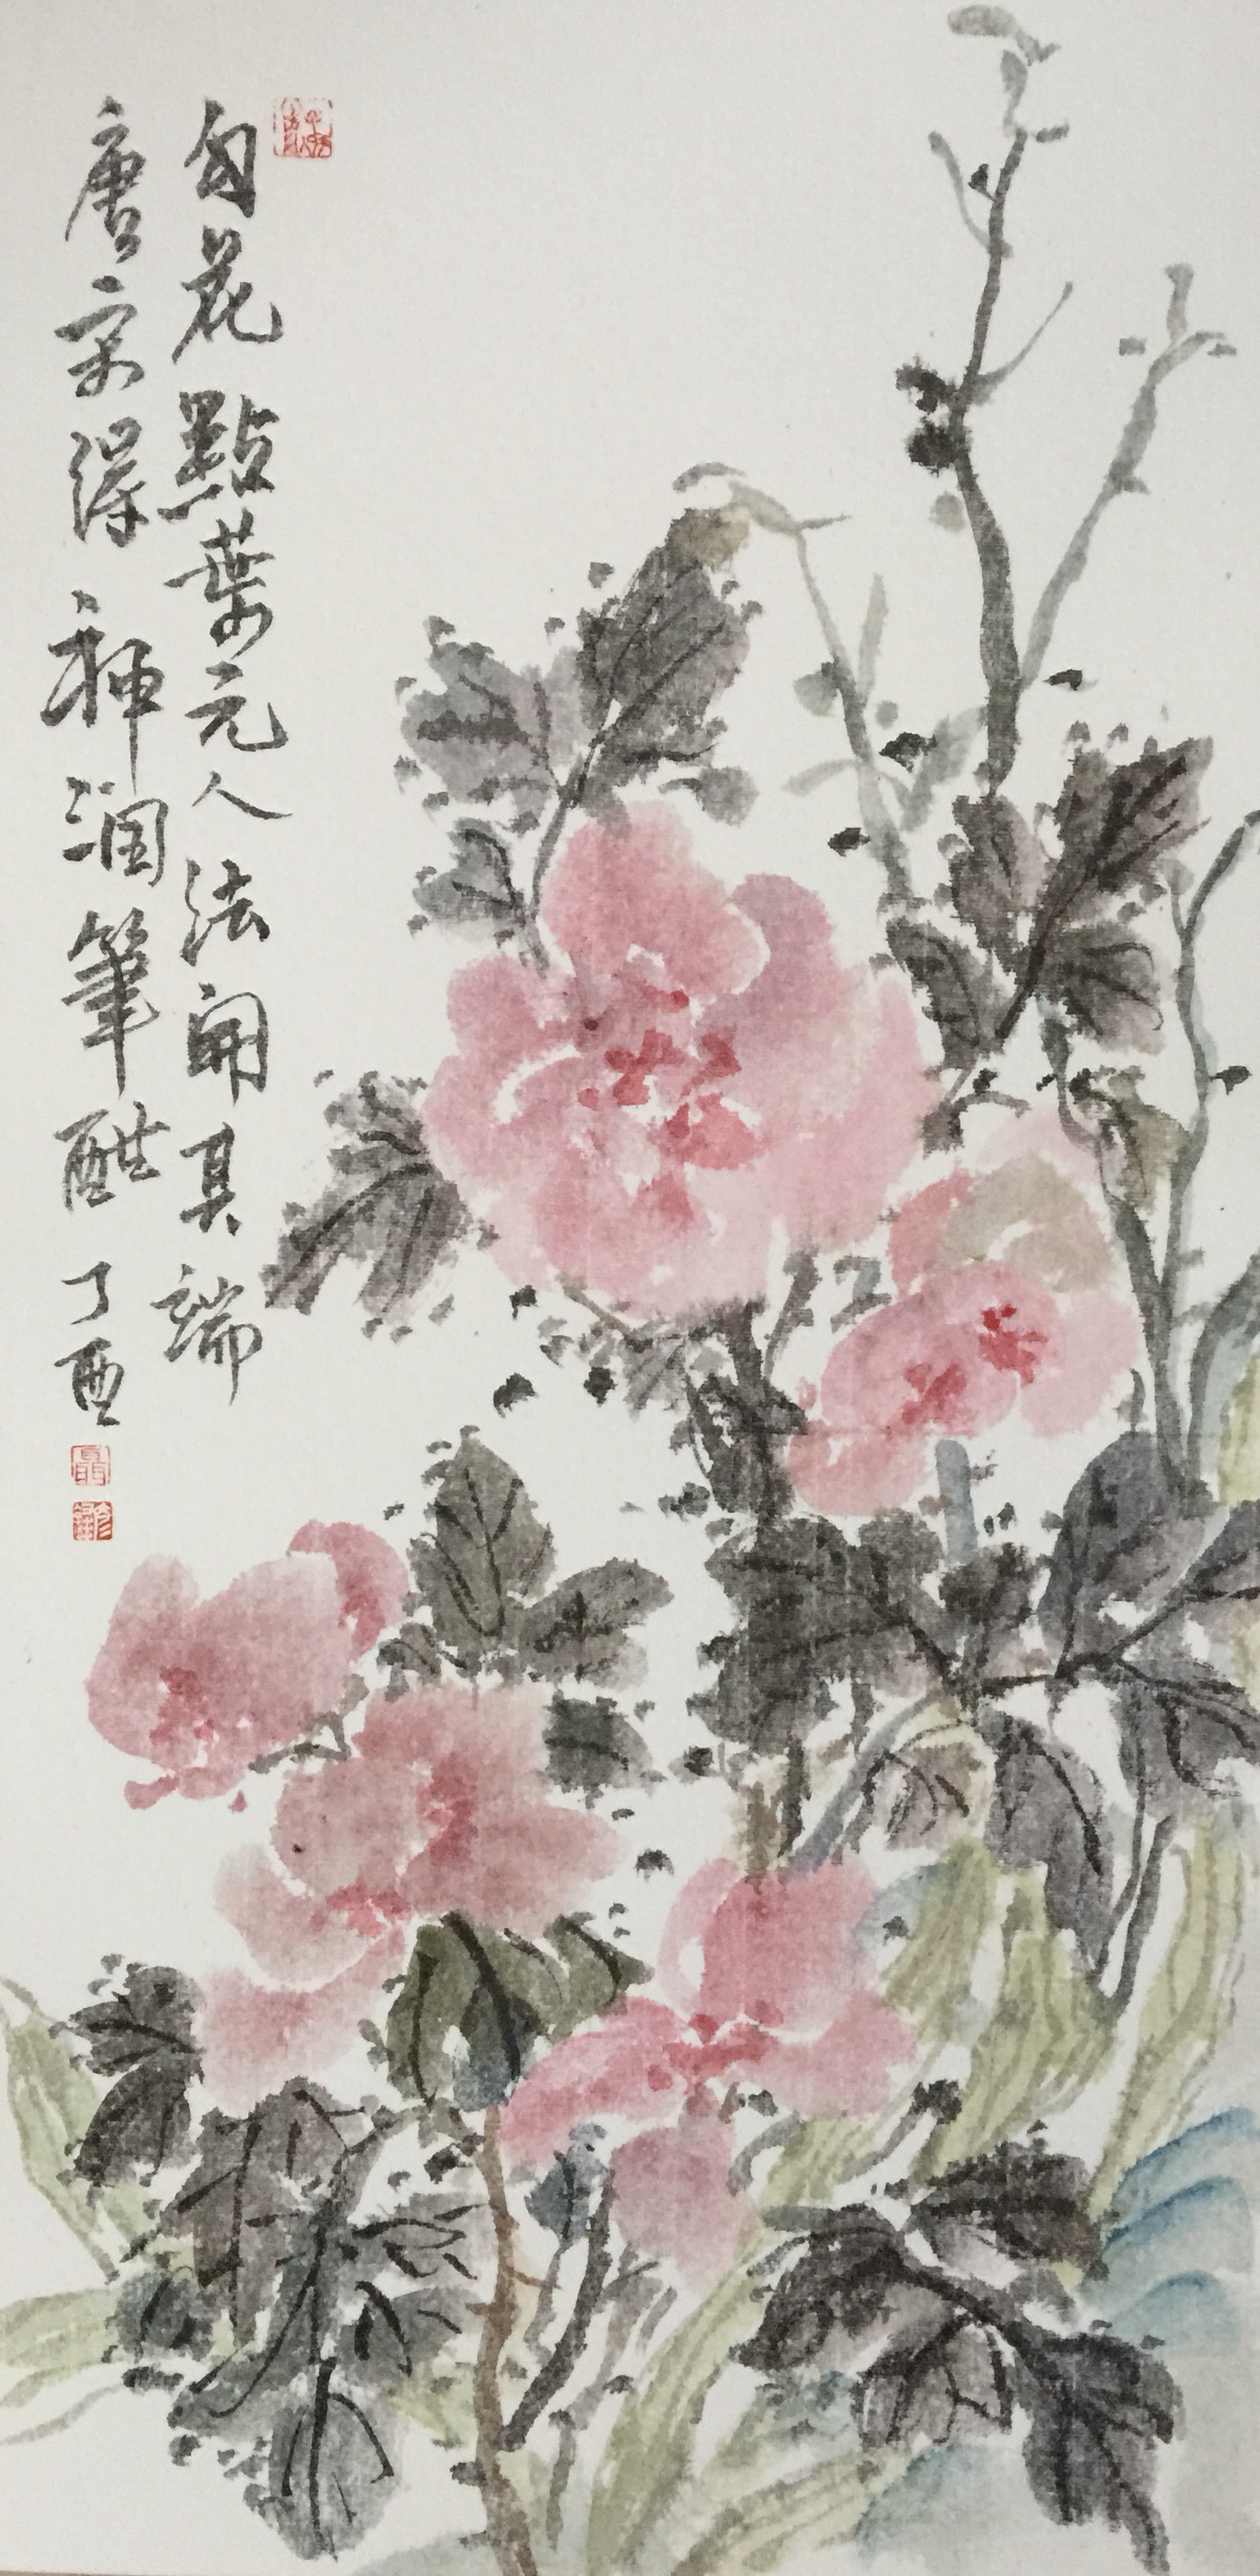 勾花點葉元人法開其端
唐宋得神潤筆酣丁酉